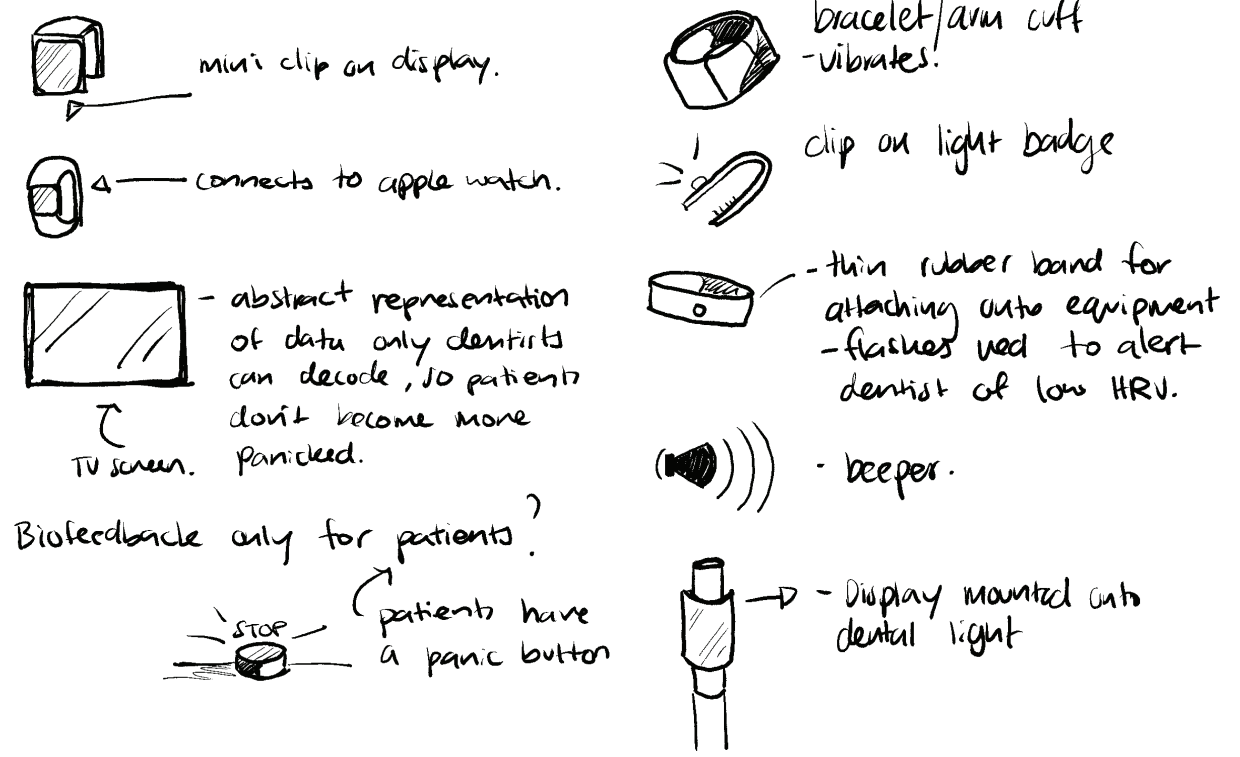 mini clip on display.
connects to apple watch.
- abstract representation
of data only dentists
can decode, so patients
don't become more
panicked.
TV screen.
Biofeedback only for patients?
patients have
a panic button
STOP
bracelet/arm cuff
- vibrates.
clip on light badge
- thin rubber band for
attaching onto equipment
- flashes red to alert
dentist of low HRV.
· beeper.
- Display mounted onto
dental light